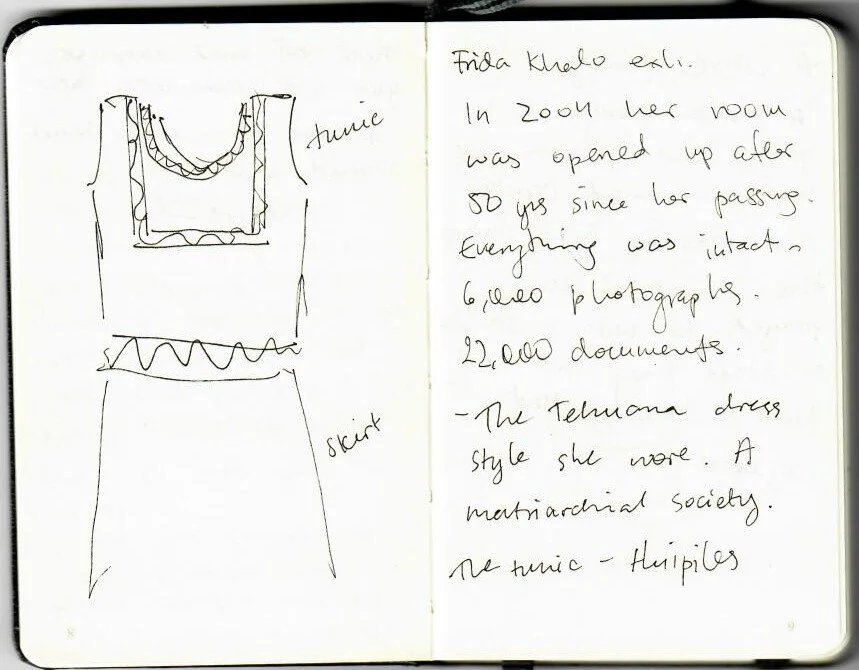 tunic
skirt
Frida Khalo exh.
In 2004 her room
was opened up after
50 yrs since her passing.
Everything was intact -
6,000 photographs.
22,000 documents.
- The Tehuana dress
style she wore. A
matriarchal society.
The tunic - Huipiles
8
9